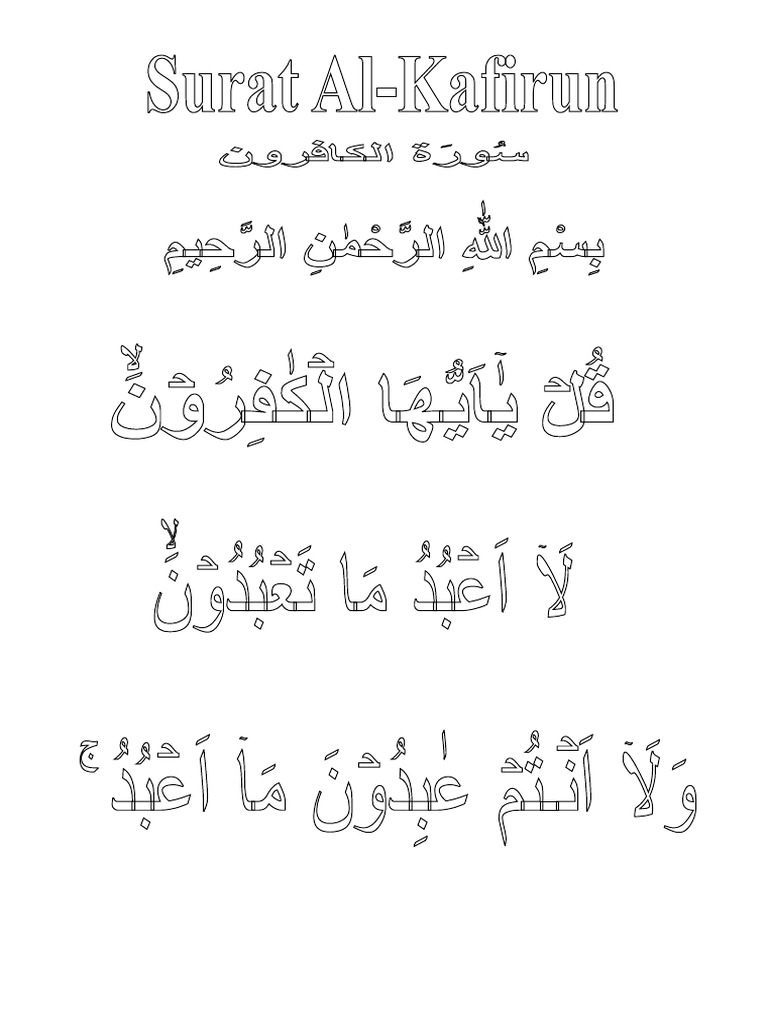 Surat Al-Kafirun
سُورَة الكافرون
بِسْمِ اللّٰهِ الرَّحْمٰنِ الرَّحِيمِ
قُلْ يٰٓاَيُّهَا الْكٰفِرُوْنَۙ
لَآ اَعْبُدُ مَا تَعْبُدُوْنَۙ
وَلَآ اَنْتُمْ عٰبِدُوْنَ مَآ اَعْبُدُۚ